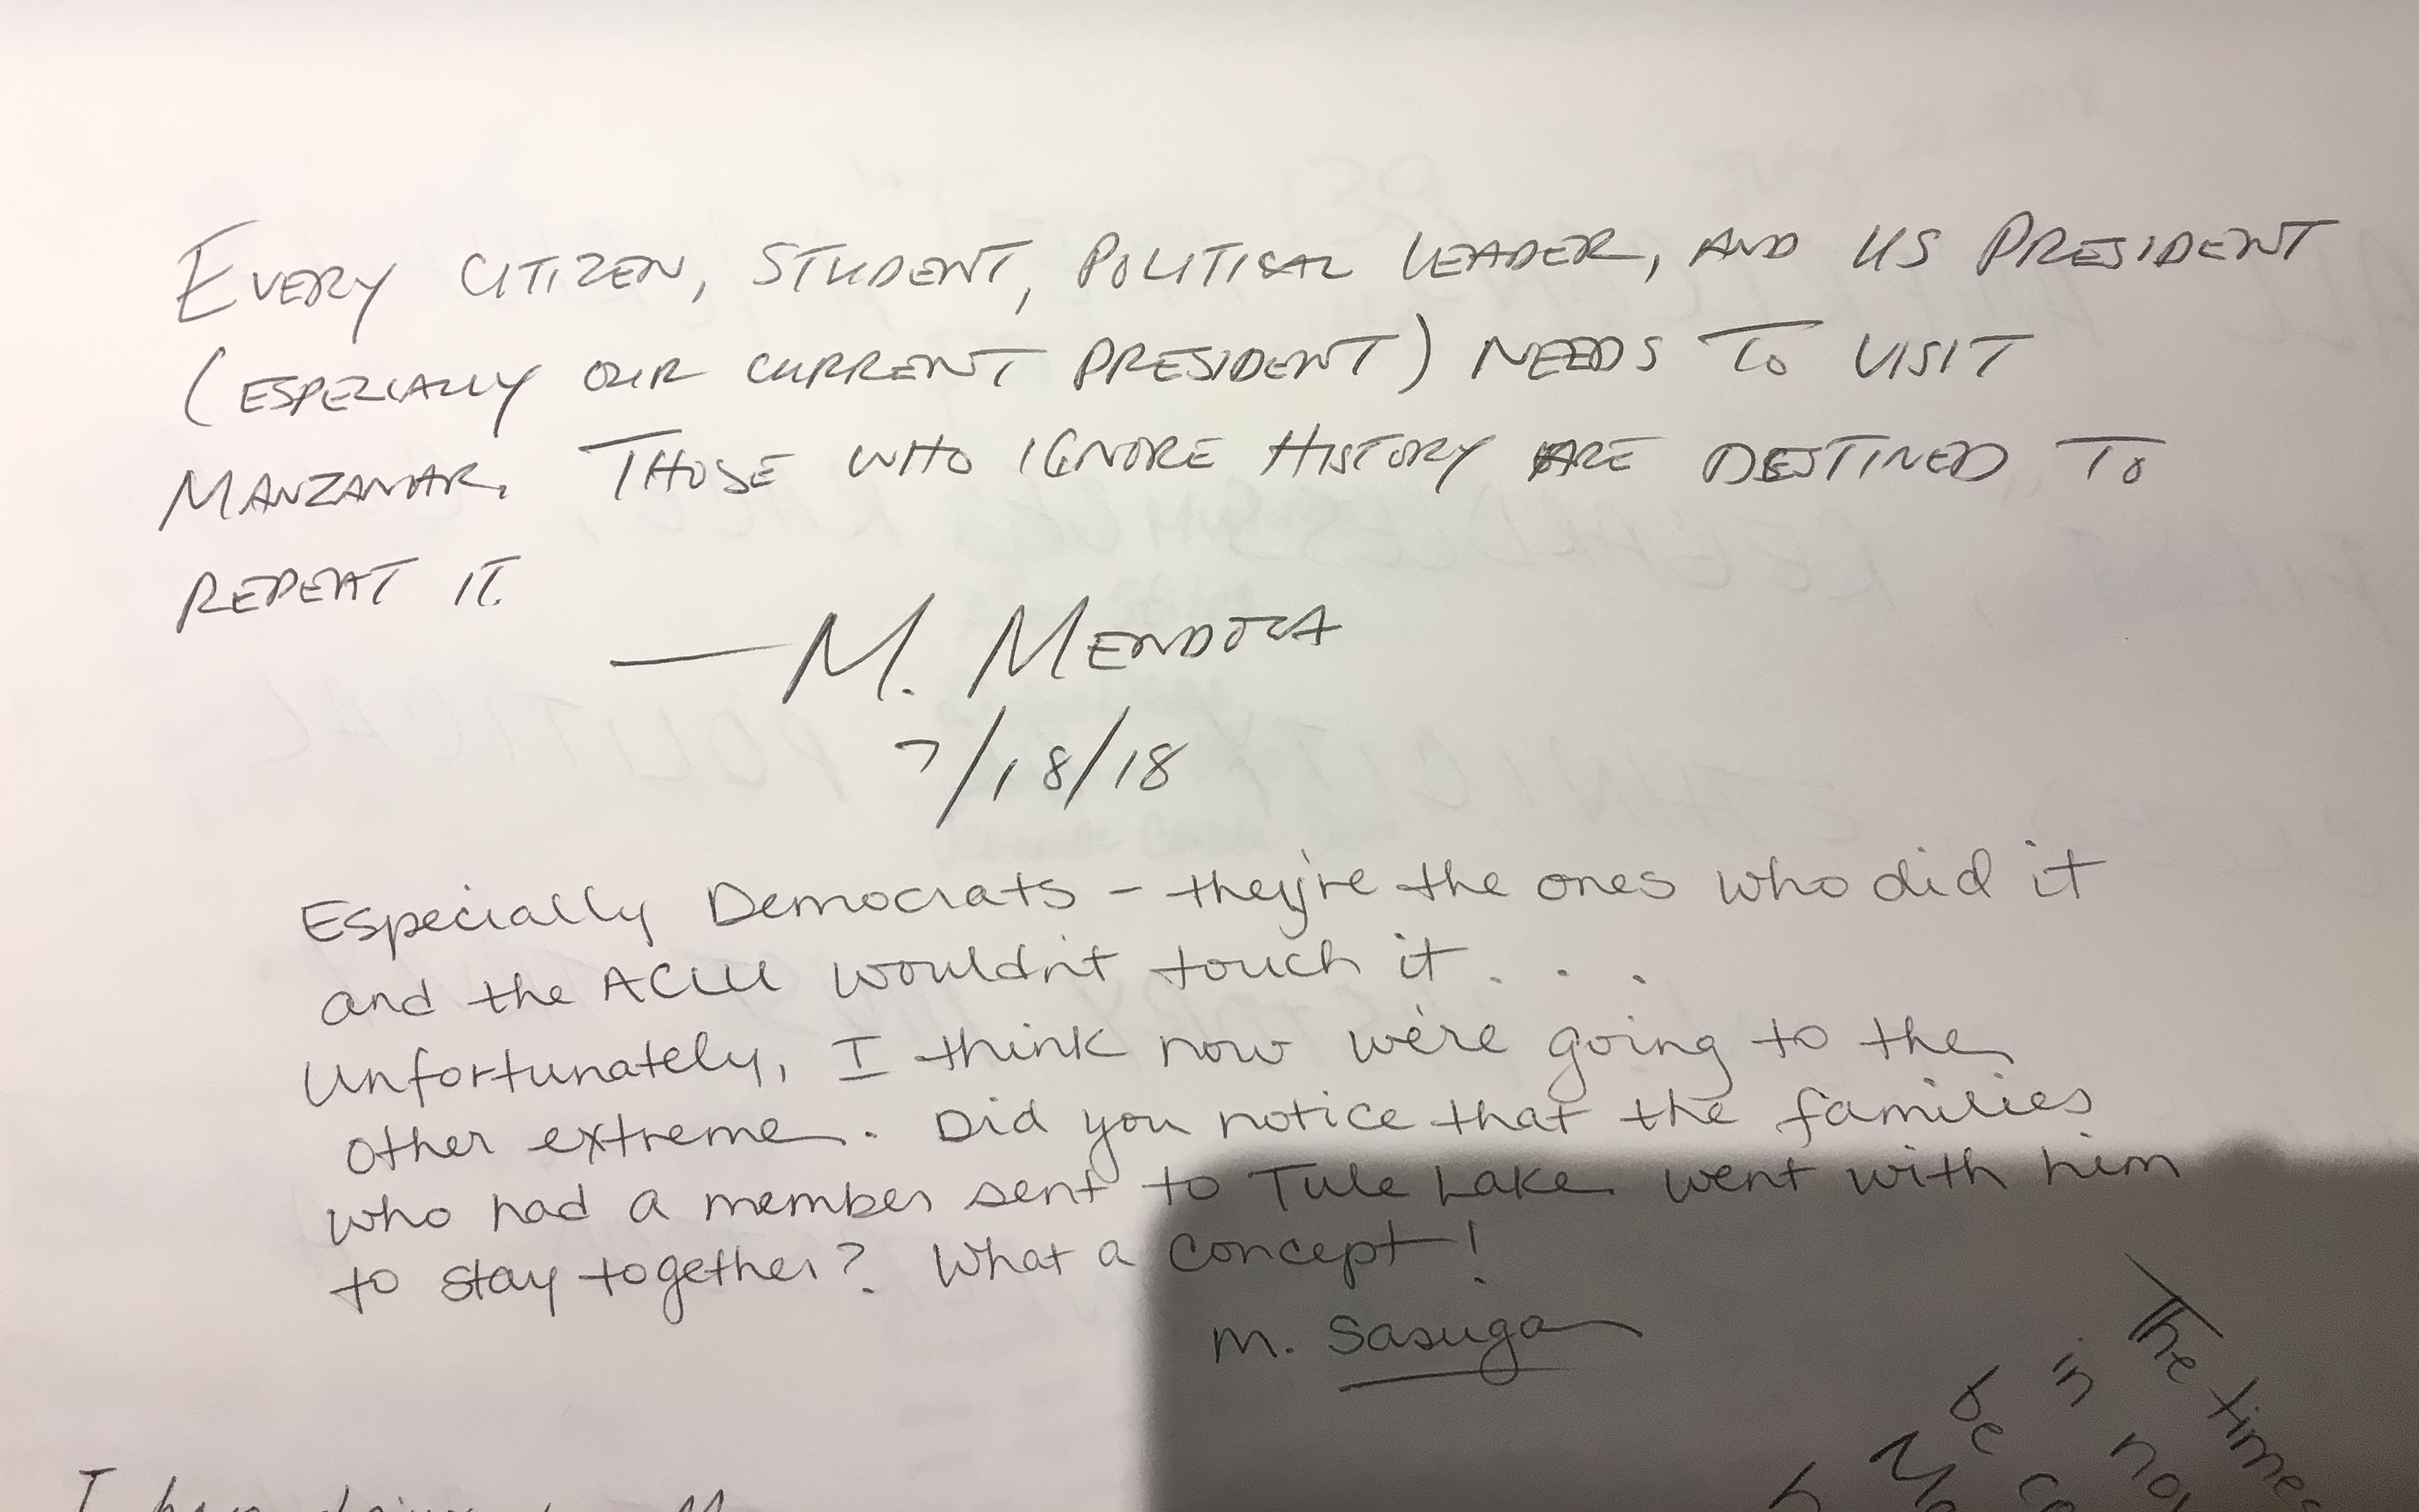 EVERY CITIZEN, STUDENT, POLITICAL LEADER, AND US PRESIDENT
(ESPECIALLY OUR CURRENT PRESIDENT) NEEDS TO VISIT
MANZANAR. THOSE WHO IGNORE HISTORY ARE DESTINED TO
REPEAT IT.
— M. MENDOZA
7/18/18
Especially Democrats - they're the ones who did it
and the ACLU wouldn't touch it. . .
Unfortunately, I think now we're going to the
other extreme. Did you notice that the families
who had a member sent to Tule Lake went with him
to stay together? What a concept!
M. Sasuga
The times
in
be
I